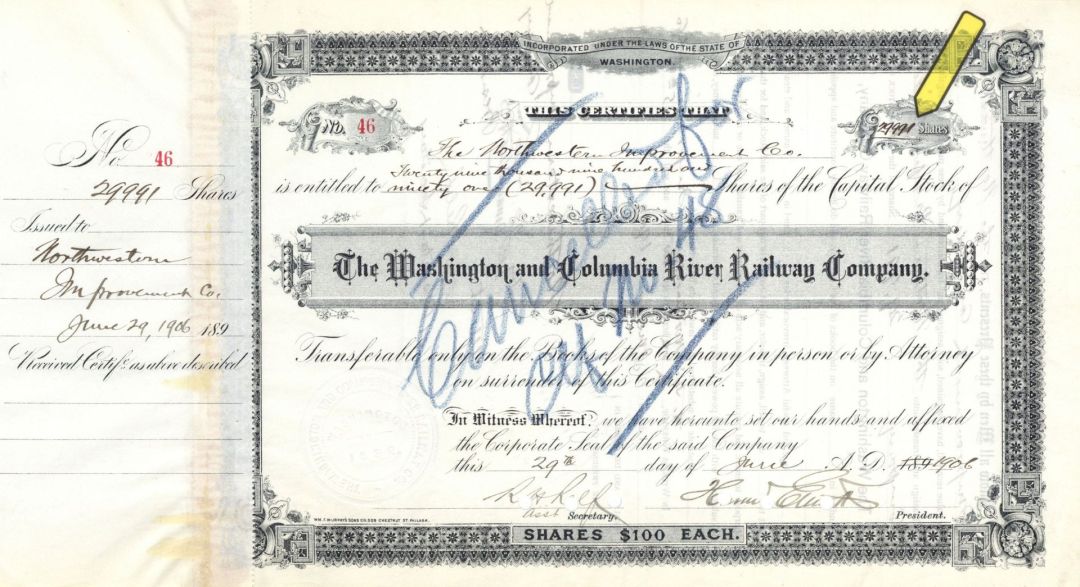 No. 46
29991 Shares
Issued to
Northwestern
Improvement Co.
June 29, 1906 189
Received Certif. as above described
INCORPORATED UNDER THE LAWS OF THE STATE OF
WASHINGTON.
THIS CERTIFIES THAT
No. 46
29991 Shares
The Northwestern Improvement Co.
is entitled to Twenty nine thousand nine hundred and
ninety one (29,991) Shares of the Capital Stock of
The Washington and Columbia River Railway Company.
Transferable only on the Books of the Company in person or by Attorney
on surrender of this Certificate.
In Witness Whereof, we have hereunto set our hands and affixed
the Corporate Seal of the said Company
this 29th day of June A.D. 1906
Asst Secretary.
President.
WM. F. MURPHY'S SONS CO. 509 CHESTNUT ST. PHILADA.
SHARES $100 EACH.
Cancelled for
No 48